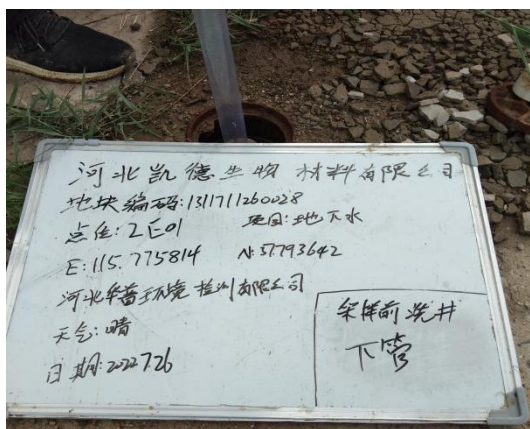 河北凯德生物材料有限公司
地块编码:1311711260028
点位:2E01 项目:地下水
E:115.775814 N:37.793642
河北华普环境检测有限公司
天气:晴
日期:2022.7.26
采样前洗井
下管